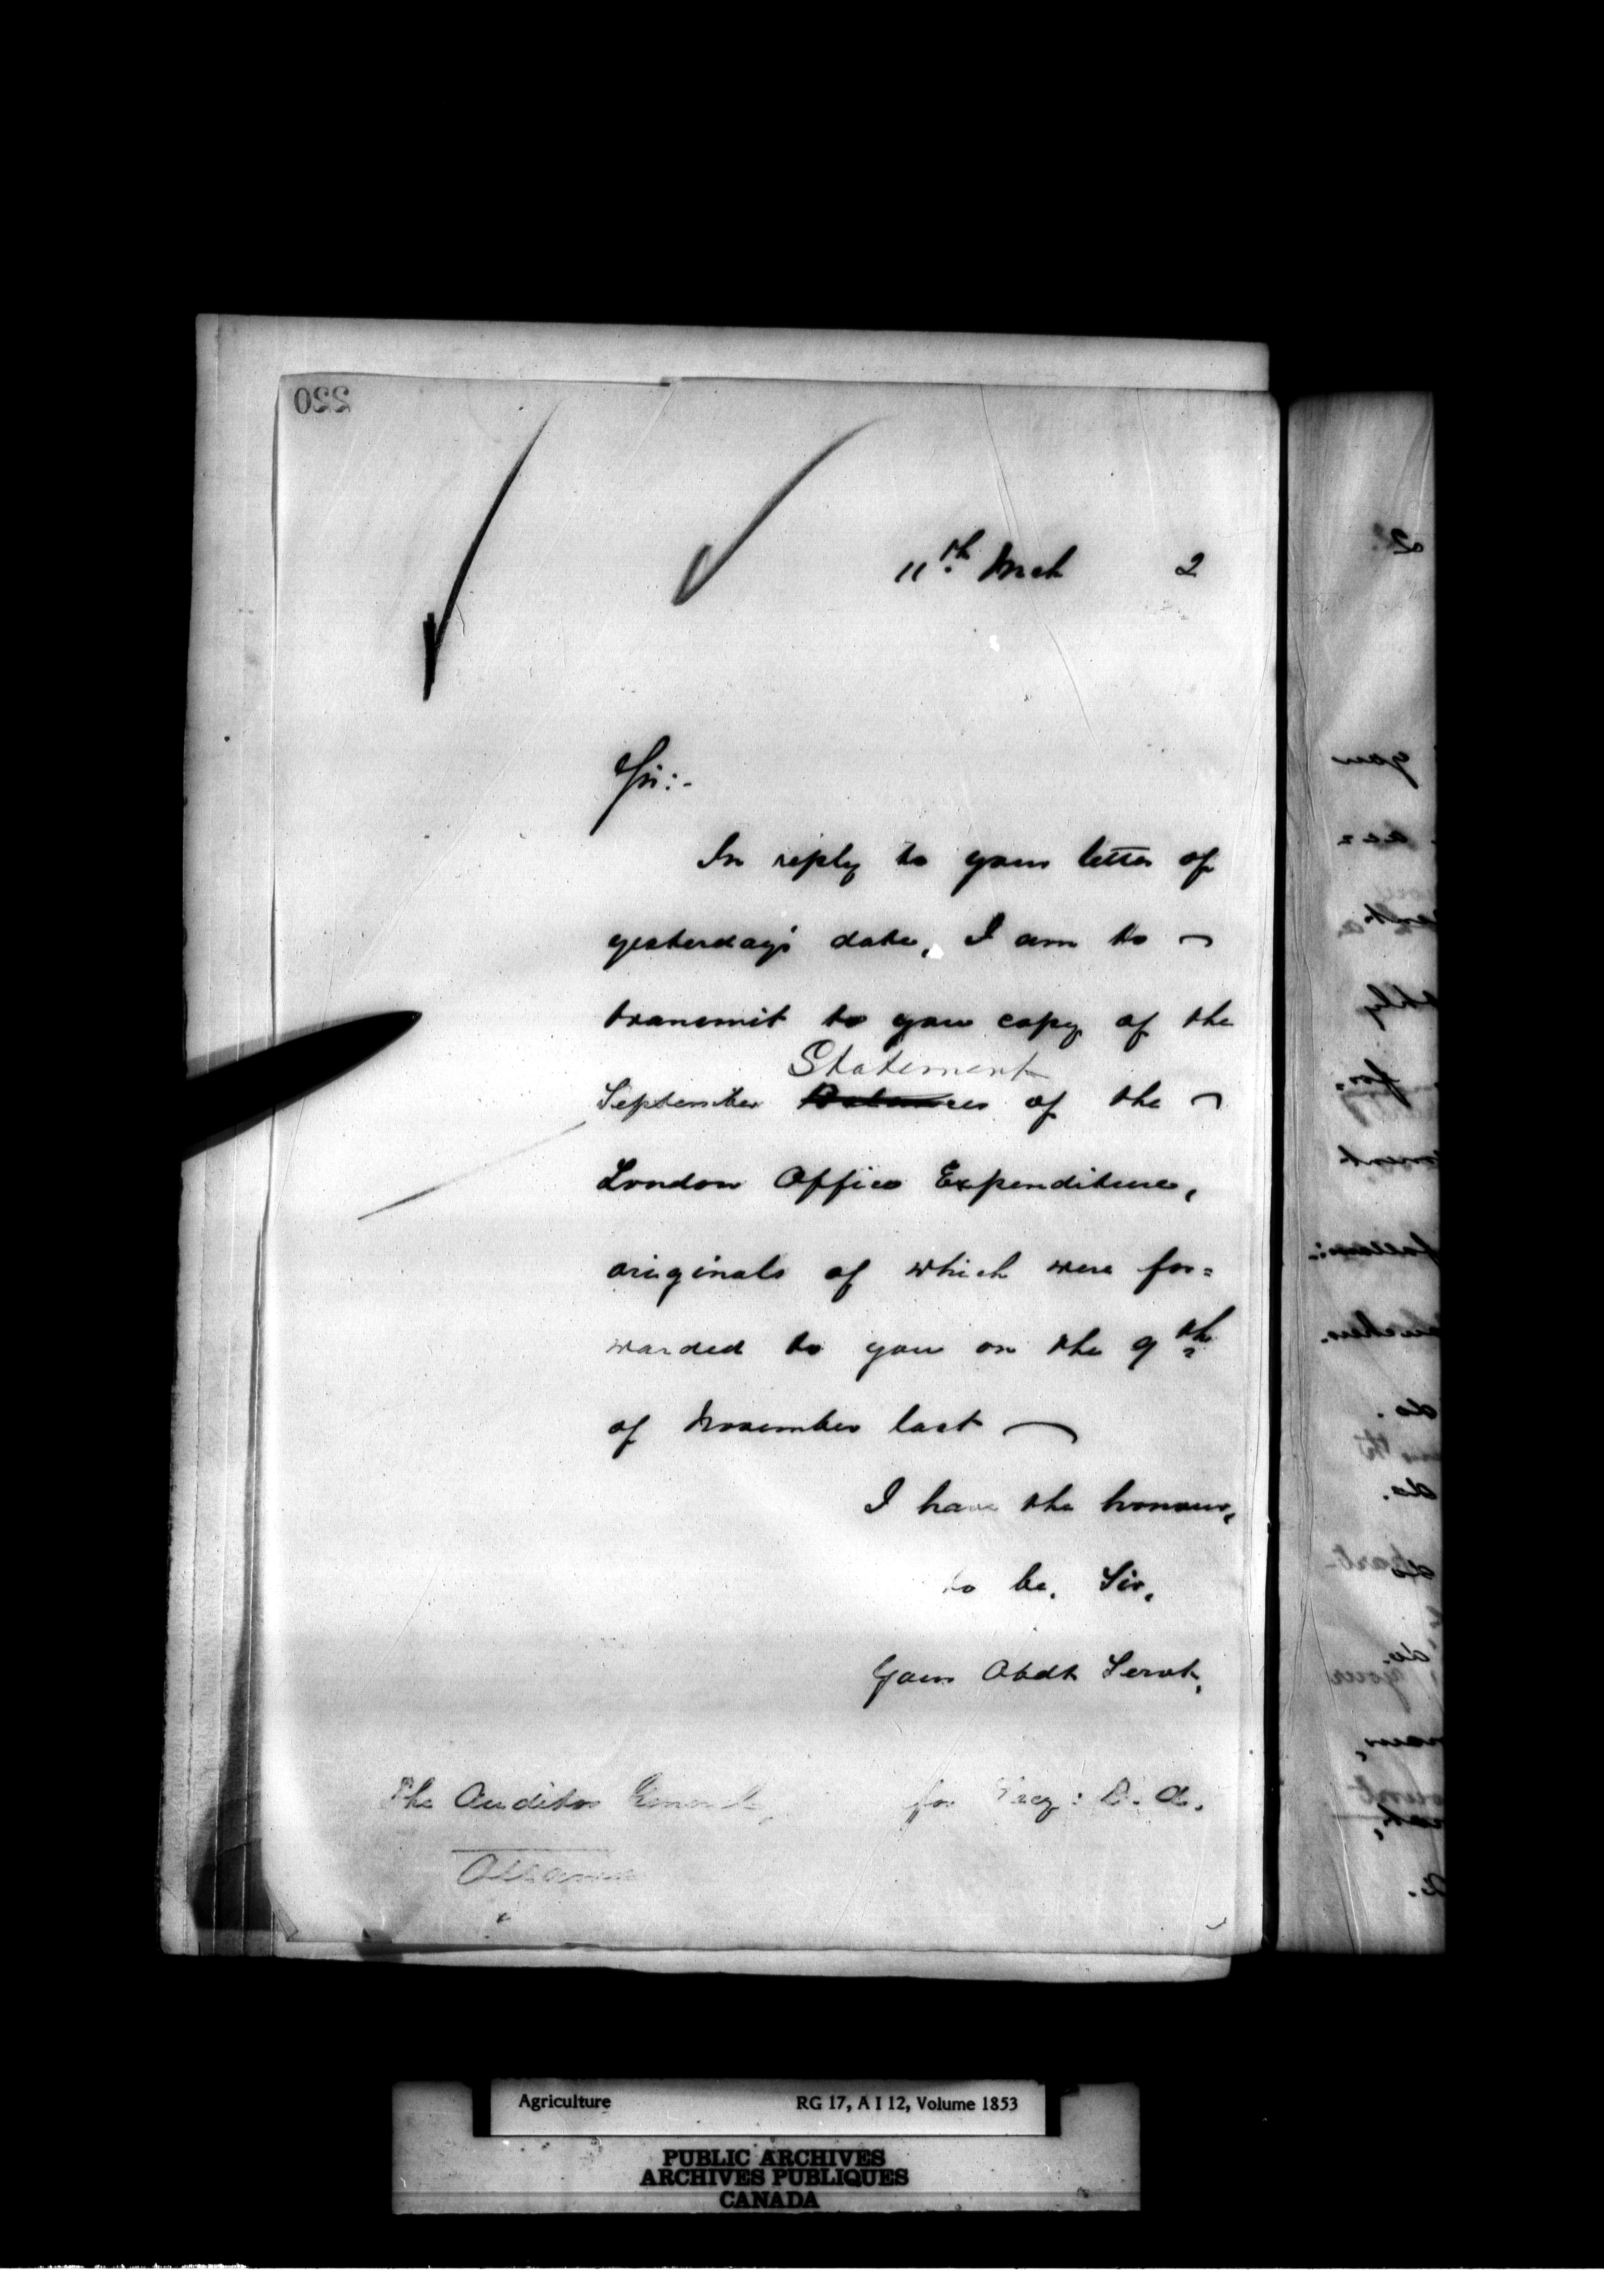 220
11th. Mch 2
Sir:-
In reply to your letter of
yesterday's date, I am to
transmit to you copy of the
Statement
September Balances of the
London Office Expenditure,
originals of which were for=
warded to you on the 9th
of November last
I have the honour,
to be, Sir,
Your Obdt Servt,
The Auditor General, for Secy: D. A.
Ottawa
Agriculture RG 17, A I 12, Volume 1853
PUBLIC ARCHIVES
ARCHIVES PUBLIQUES
CANADA